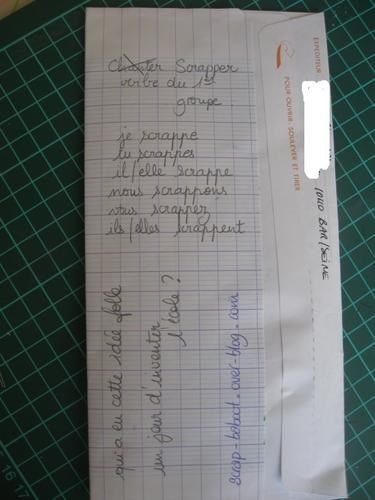 Chanter Scrapper
verbe du 1er
groupe
je scrappe
tu scrappes
il/elle scrappe
nous scrappons
vous scrappez
ils/elles scrappent
qui a eu cette idée folle
un jour d'inventer
l'école ?
scrap-bobout.over-blog.com
EXPEDITEUR
POUR OUVRIR : SOULEVER ET TIRER
BAR/SEINE
16 17